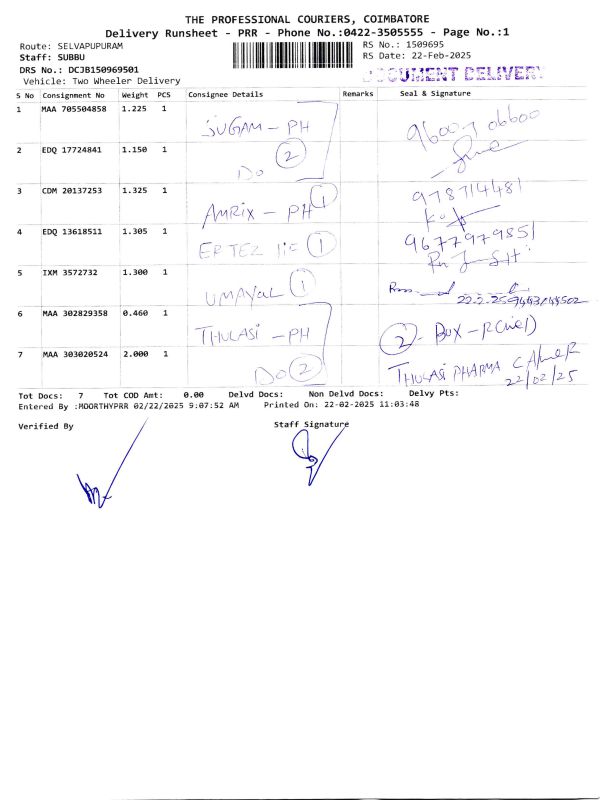 THE PROFESSIONAL COURIERS, COIMBATORE
Delivery Runsheet - PRR - Phone No.:0422-3505555 - Page No.:1
Route: SELVAPUPURAM
RS No.: 1509695
Staff: SUBBU
RS Date: 22-Feb-2025
DRS No.: DCJB150969501
DOCUMENT DELIVERY
Vehicle: Two Wheeler Delivery
S No Consignment No Weight PCS Consignee Details Remarks Seal & Signature
1 MAA 705504858 1.225 1 SUGAM - PH
2 EDQ 17724841 1.150 1 Do 2
3 CDM 20137253 1.325 1 AMRIX - PH 1 978714481
4 EDQ 13618511 1.305 1 1 9677979851
5 IXM 3572732 1.300 1 UMAYAL 1 22.2.25
6 MAA 302829358 0.460 1 THULASI - PH 2 - BOX -
7 MAA 303020524 2.000 1 Do 2 THULASI PHARMA
22/02/25
Tot Docs: 7 Tot COD Amt: 0.00 Delvd Docs: Non Delvd Docs: Delvy Pts:
Entered By :MOORTHYPRR 02/22/2025 9:07:52 AM Printed On: 22-02-2025 11:03:48
Verified By Staff Signature